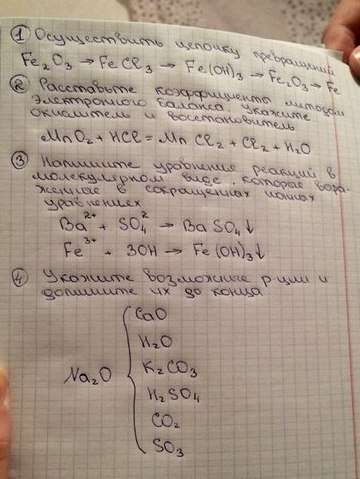 ① Осуществить цепочку превращений
Fe₂O₃ → FeCl₃ → Fe(OH)₃ → Fe₂O₃ → Fe
② Расставьте коэффициенты методом
электронного баланса, укажите
окислитель и восстановитель
MnO₂ + HCl = MnCl₂ + Cl₂ + H₂O
③ Напишите уравнение реакций в
молекулярном виде, которая выра-
женная в сокращенных ионных
уравнениях
Ba²⁺ + SO₄² → BaSO₄↓
Fe³⁺ + 3OH → Fe(OH)₃↓
④ Укажите возможные р-ции и
допишите их до конца
CaO
H₂O
K₂CO₃
Na₂O
H₂SO₄
CO₂
SO₃